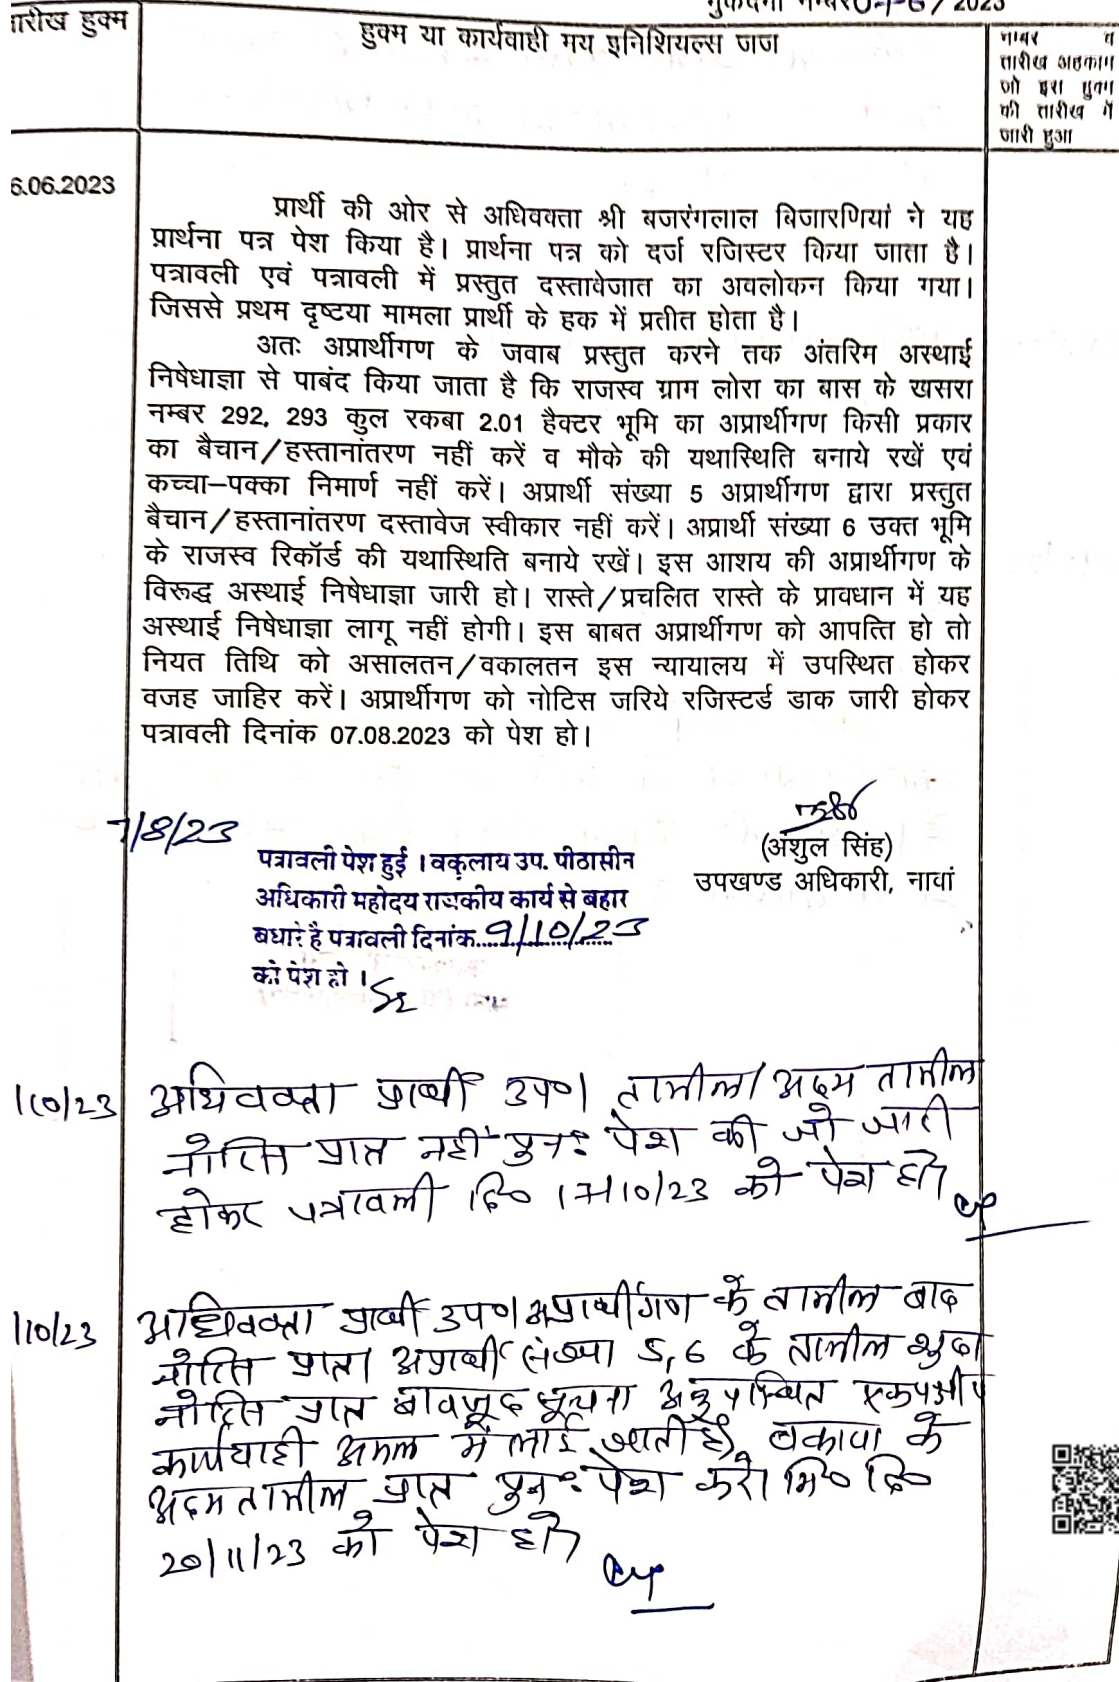 मुकदमा नम्बर / 2023
तारीख हुक्म
हुक्म या कार्यवाही मय इनिशियल्स जज
नम्बर व
तारीख अहकाम
जो इस हुक्म
की तारीख में
जारी हुआ
6.06.2023
प्रार्थी की ओर से अधिवक्ता श्री बजरंगलाल बिजारणियां ने यह
प्रार्थना पत्र पेश किया है। प्रार्थना पत्र को दर्ज रजिस्टर किया जाता है।
पत्रावली एवं पत्रावली में प्रस्तुत दस्तावेजात का अवलोकन किया गया।
जिससे प्रथम दृष्टया मामला प्रार्थी के हक में प्रतीत होता है।
अतः अप्रार्थीगण के जवाब प्रस्तुत करने तक अंतरिम अस्थाई
निषेधाज्ञा से पाबंद किया जाता है कि राजस्व ग्राम लोरा का बास के खसरा
नम्बर 292, 293 कुल रकबा 2.01 हैक्टर भूमि का अप्रार्थीगण किसी प्रकार
का बैचान/हस्तानांतरण नहीं करें व मौके की यथास्थिति बनाये रखें एवं
कच्चा–पक्का निमार्ण नहीं करें। अप्रार्थी संख्या 5 अप्रार्थीगण द्वारा प्रस्तुत
बैचान/हस्तानांतरण दस्तावेज स्वीकार नहीं करें। अप्रार्थी संख्या 6 उक्त भूमि
के राजस्व रिकॉर्ड की यथास्थिति बनाये रखें। इस आशय की अप्रार्थीगण के
विरूद्ध अस्थाई निषेधाज्ञा जारी हो। रास्ते/प्रचलित रास्ते के प्रावधान में यह
अस्थाई निषेधाज्ञा लागू नहीं होगी। इस बाबत अप्रार्थीगण को आपत्ति हो तो
नियत तिथि को असालतन/वकालतन इस न्यायालय में उपस्थित होकर
वजह जाहिर करें। अप्रार्थीगण को नोटिस जरिये रजिस्टर्ड डाक जारी होकर
पत्रावली दिनांक 07.08.2023 को पेश हो।
(अंशुल सिंह)
उपखण्ड अधिकारी, नावां
7/8/23
पत्रावली पेश हुई । वकूलाय उप. पीठासीन
अधिकारी महोदय राजकीय कार्य से बहार
बधारे है पत्रावली दिनांक 9/10/23
को पेश हो ।
10/23 अधिवक्ता प्रार्थी उप०। तामील/अदम तामील
नोटिस प्राप्त नहीं पुनः पेश की जो जारी
होकर पत्रावली दि० 17/10/23 को पेश हो
10/23 अधिवक्ता प्रार्थी उप० अप्रार्थीगण के तामील बाद
नोटिस प्राप्त। अप्रार्थी संख्या 5,6 के तामील शुदा
नोटिस प्राप्त बावजूद सूचना अनुपस्थित एकपक्षीय
कार्यवाही अमल में लाई जाती है, बकाया के
अदम तामील प्राप्त पुनः पेश करे। मि० दि०
20/11/23 को पेश हो